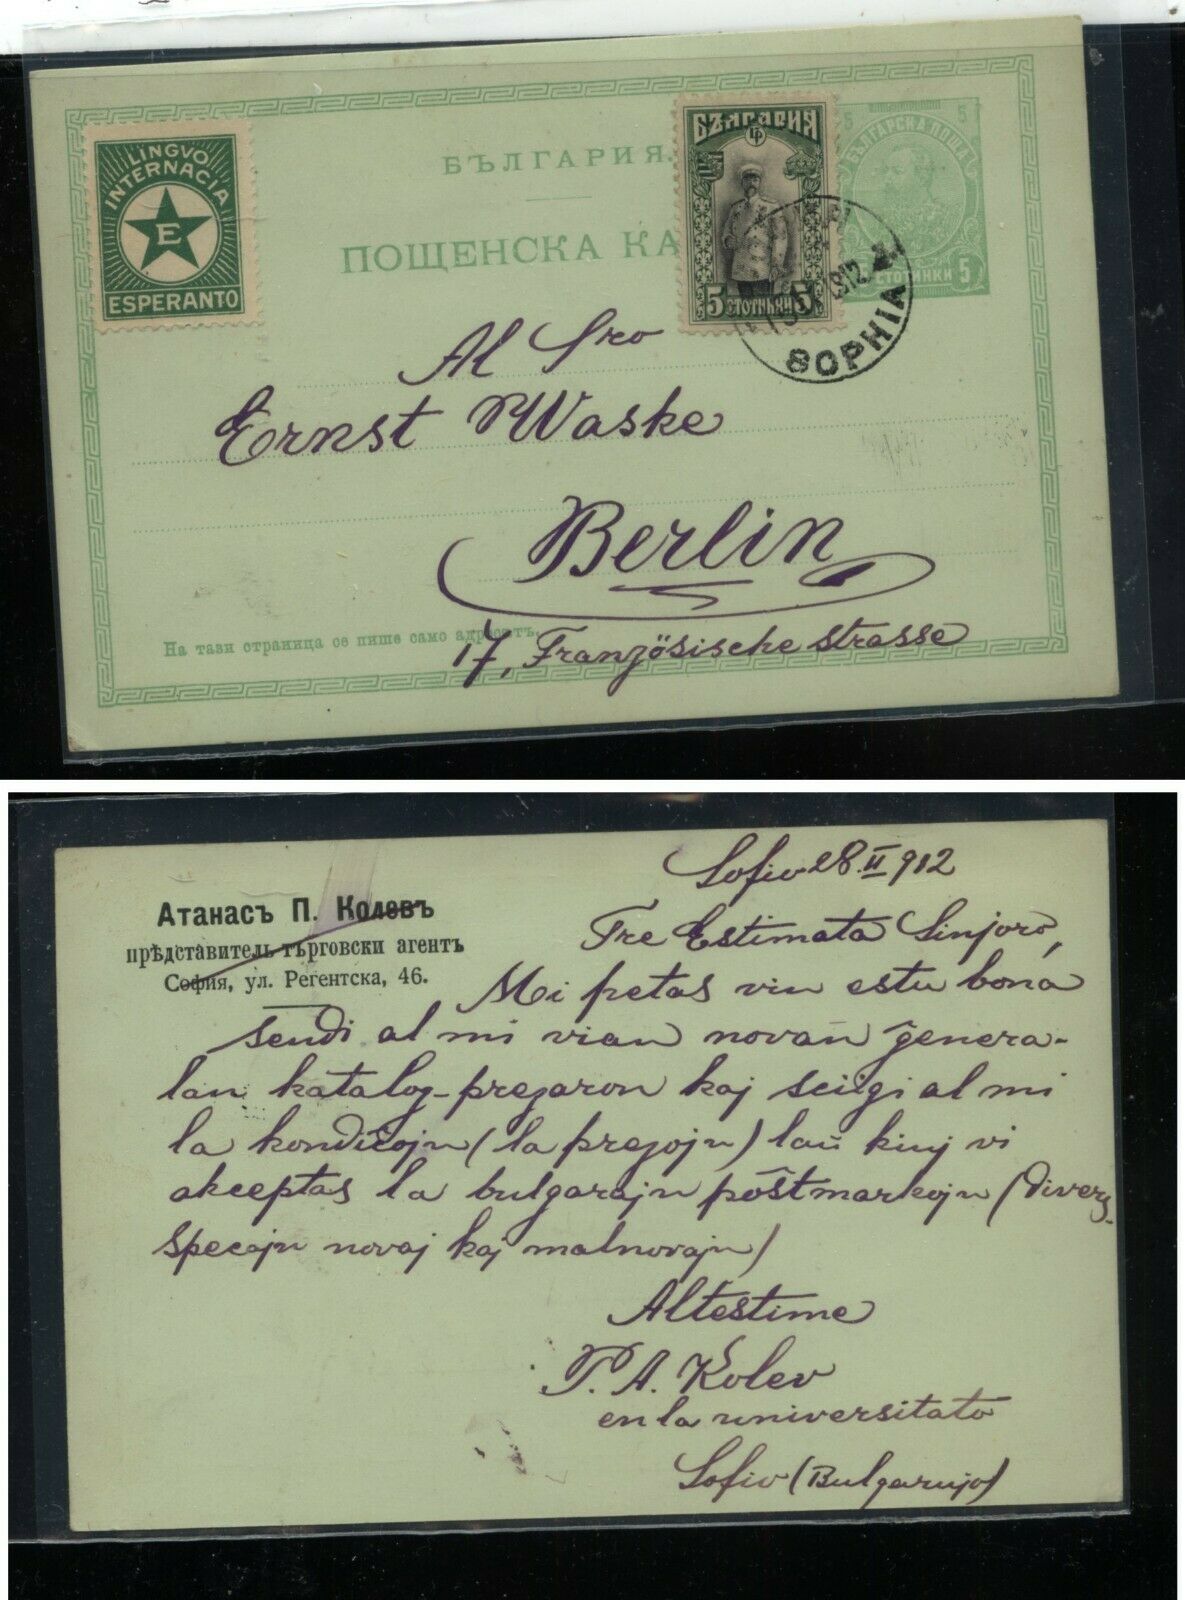 LINGVO
INTERNACIA
E
ESPERANTO
БЪЛГАРИЯ.
ПОЩЕНСКА КА
БЪЛГАРИЯ
5 СТОТИНКИ 5
5 5
БЪЛГАРСКА ПОЩА
СТОТИНКИ 5
SOPHIA
Al Sro
Ernst Waske
Berlin
17, Französische strasse
На тази страница се пише само адресътъ.
Sofio 28.II 912
Атанасъ П. Колевъ
прѣдставитель-търговски агентъ
София, ул. Регентска, 46.
Tre Estimata Sinjoro,
Mi petas vin estu bona
sendi al mi vian novan ĝenera-
lan katalog-prezaron kaj sciigi al mi
la kondiĉojn (la prezojn) laŭ kiuj vi
akceptas la bulgarajn poŝtmarkojn (divers-
specajn novaj kaj malnovajn)
Altestime
P. A. Kolev
en la universitato
Sofio (Bulgarujo)